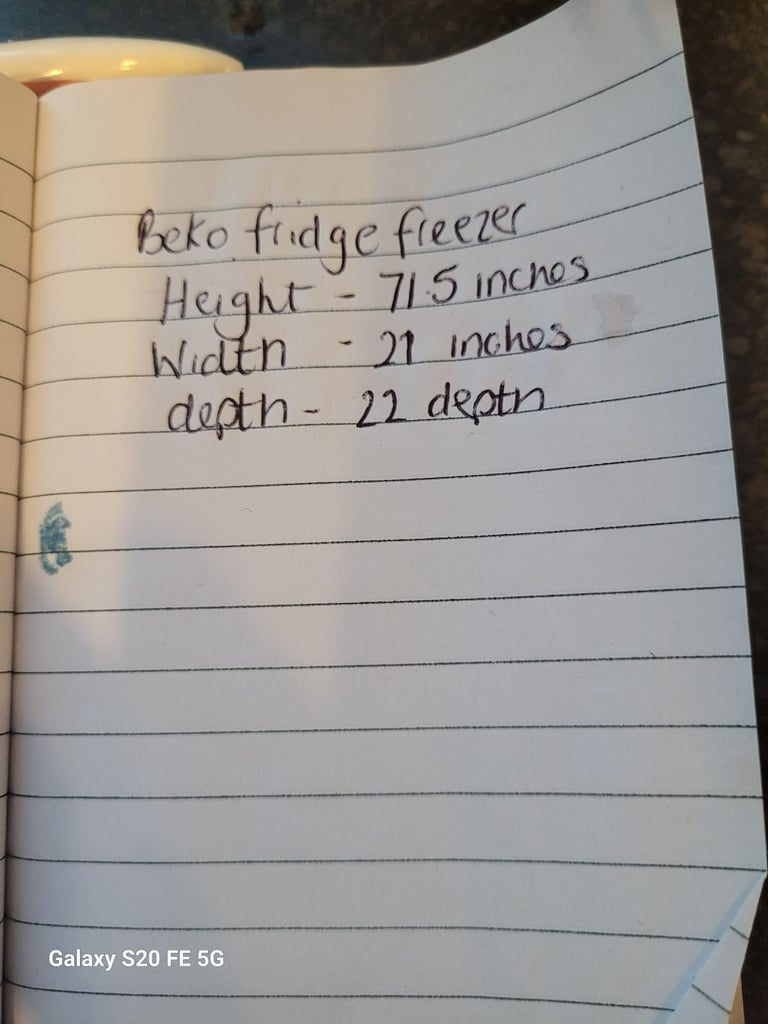 Beko fridge freezer
Height - 71.5 inches
Width - 21 inches
depth - 22 depth
Galaxy S20 FE 5G